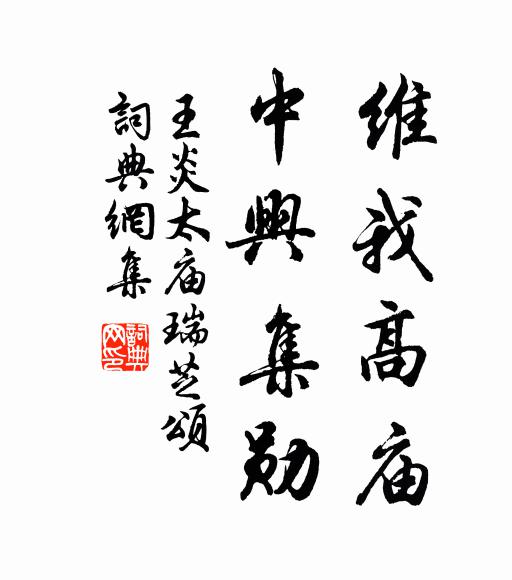 維我高庙
中興集勛
王炎太庙瑞芝頌
詞典網集
詞典网印